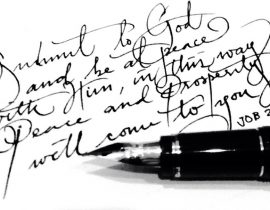 Submit to God
and be at peace
with Him, in this way
Peace and Prosperity
will come to you
JOB 2